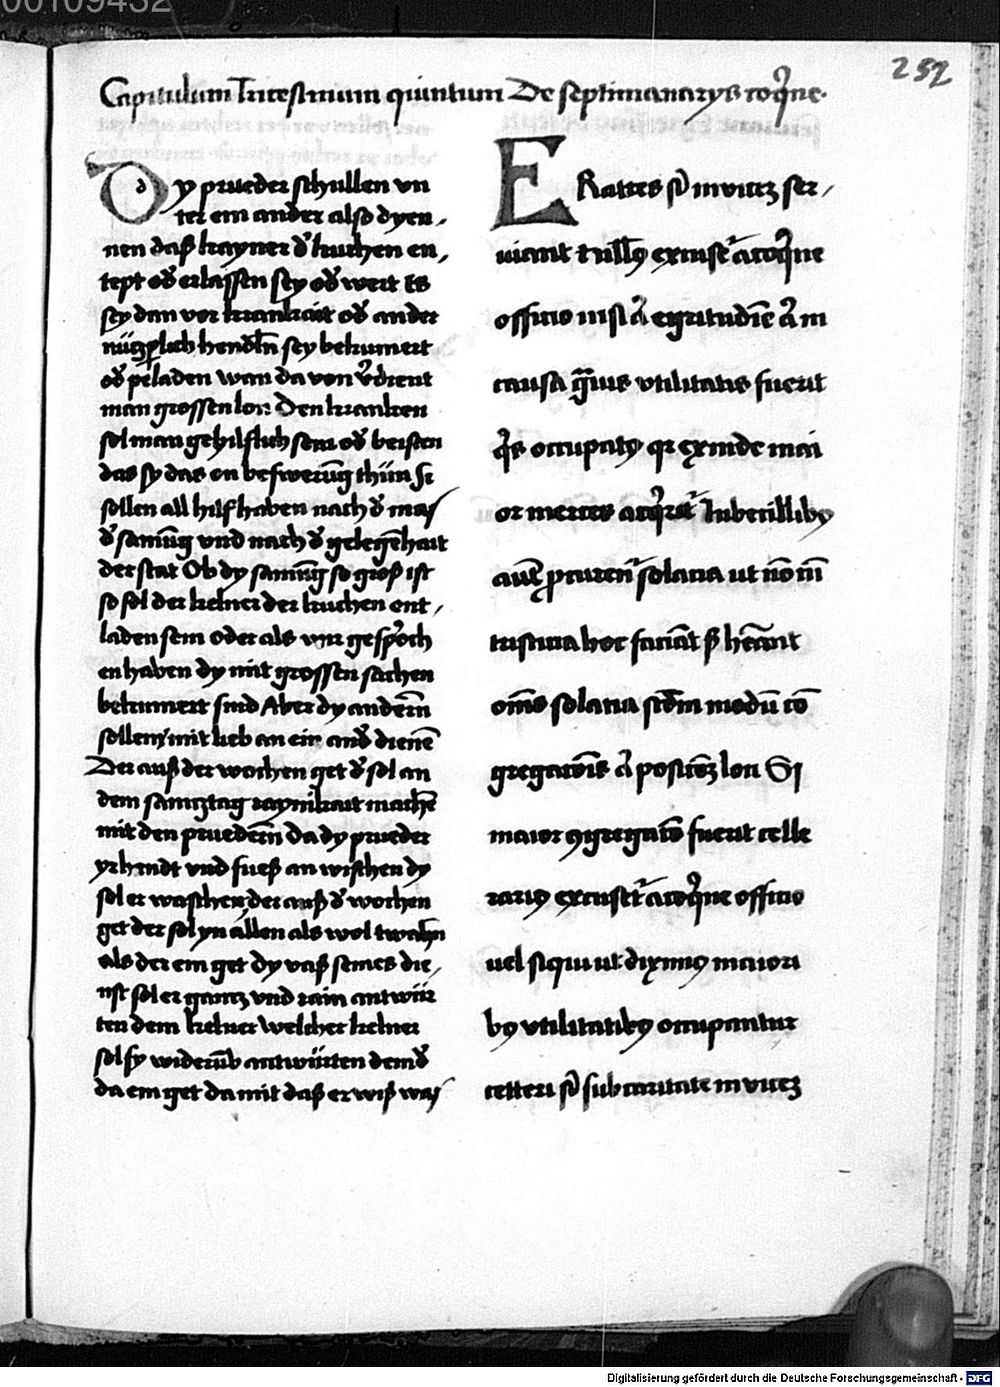 00109432
252
Capitulum Tricesimum quintum De septimanarys coq̓ne.
Dy prueder schullen vn
ter ein ander also dyen,
nen daß kayner d̓ kuchen en,
tept od̓ erlassen sey od̓ wert Es
sey dan vor krankait od̓ ander
nüczp̱lich hendl̄n sey bekumert
od̓ peladen wan da von v̓dient
man grossen lon Den kranken
sol man gehilflich sein od̓ beisten
das sy das on beswerūg thün Si
sollen all hilf haben nach d̓ mas
d̓ samūg vnd nach d̓ gelegēhait
der stat Ob dy samūg so groß ist
so sol der kelner der kuchen ent,
laden sein oder als wir gesp̓och
en haben dy mit grossen sachen
bekumert sind Aber dy andern̄
sollen mit lieb an ein and̓ dienē
Der auß der wochen get d̓ sol an
dem samcztag raynikait machē
mit den pruedern̄ Da dy prueder
yr hendt vnd fueß an wischen dy
sol er waschen der auß d̓ wochen
get der sol yn allen als wol twahn̄
als der ein get dy vaß seines die,
nst sol er gancz vnd rain antwür
ten dem kelner Welcher kelner
sol sy widerūb antwürten dem d̓
da ein get da mit daß er wiß was
ERatres s̓ inuicez ser,
uiant t null9 excuset̓ a coq̓ne
officio nisi a̓ egritudīe a̓ in
causa g̓uis vtilitatis fuerit
q̓s occupat9 qr exinde mai
or merces acq̓rit̓ Inbecillib9
aut̄ ꝓcurent̓ solacia ut nō cū
tristicia hoc faciāt s̓ habeāt
om̄s solacia scd̄m modū cō
gregatōis a̓ positōez loci Si
maior 9gregatō fuerit celle
rari9 excuset̓ a coq̓ne officio
uel siqui ut dixim9 maiori
b9 vtilitatib9 occupantur
cetteri s̓ sub caritate inuicez
Digitalisierung gefördert durch die Deutsche Forschungsgemeinschaft - DFG